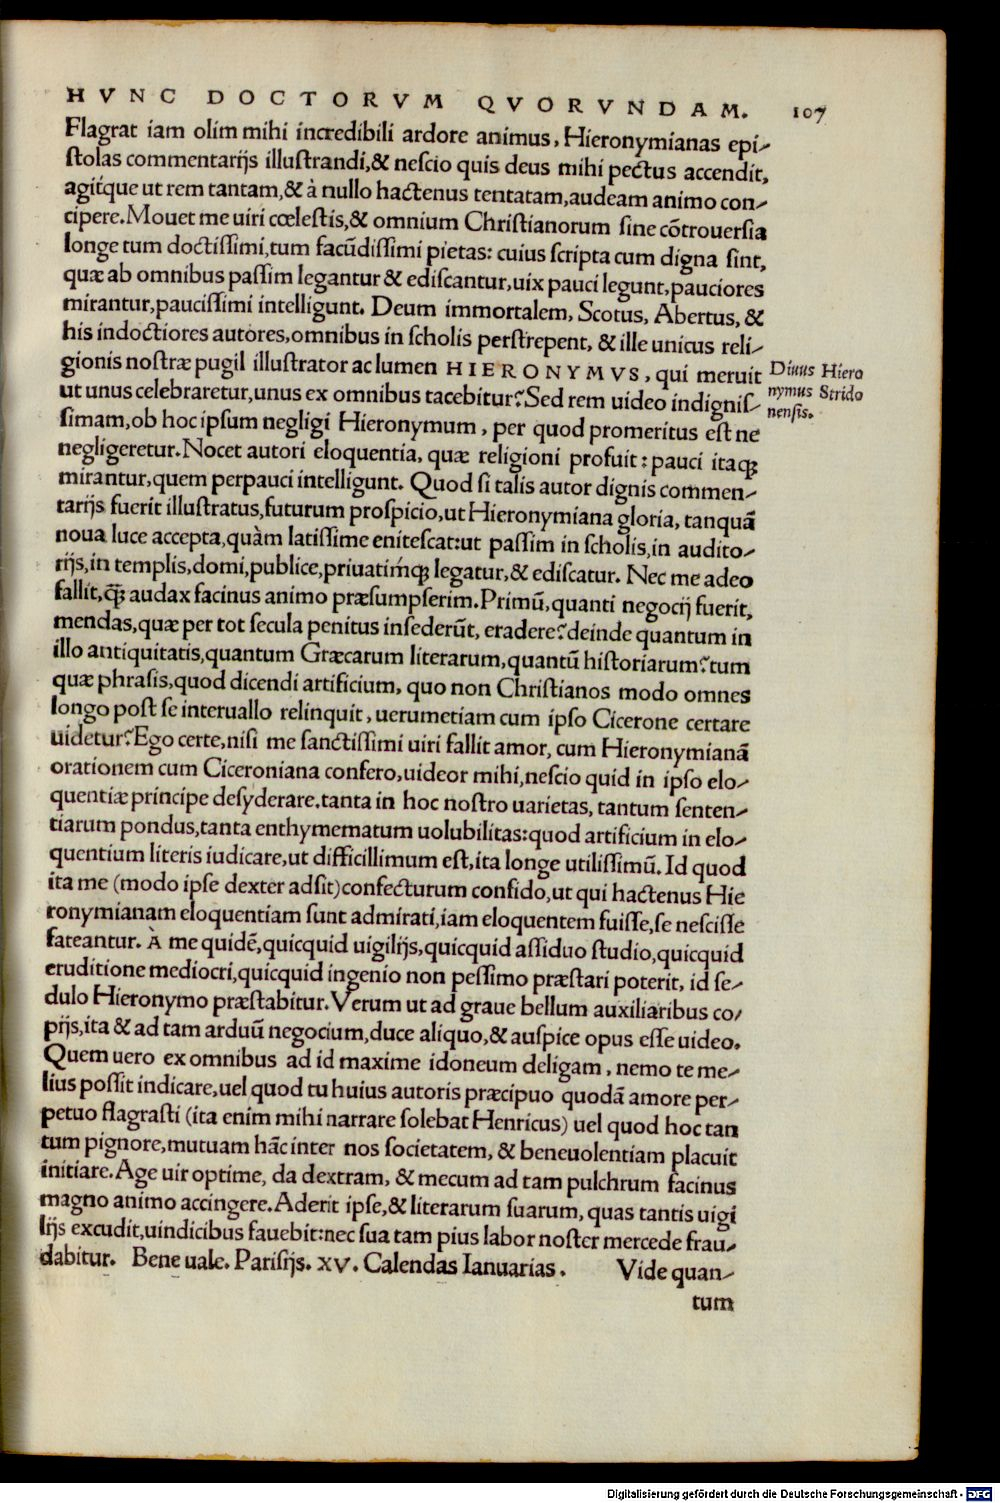 HVNC DOCTORVM QVORVNDAM. 107
Flagrat iam olim mihi incredibili ardore animus, Hieronymianas epi-
ſtolas commentarijs illuſtrandi,& neſcio quis deus mihi pectus accendit,
agitq́ue ut rem tantam,& à nullo hactenus tentatam,audeam animo con-
cipere.Mouet me uiri cœleſtis,& omnium Chriſtianorum ſine cõtrouerſia
longe tum doctiſſimi,tum facũdiſſimi pietas: cuius ſcripta cum digna ſint,
quæ ab omnibus paſſim legantur & ediſcantur,uix pauci legunt,pauciores
mirantur,pauciſſimi intelligunt. Deum immortalem, Scotus, Abertus, &
his indoctiores autores,omnibus in ſcholis perſtrepent, & ille unicus reli-
gionis noſtræ pugil illuſtrator ac lumen HIERONYMVS, qui meruit
ut unus celebraretur,unus ex omnibus tacebitur? Sed rem uideo indigniſ-
ſimam,ob hoc ipſum negligi Hieronymum, per quod promeritus eſt ne
negligeretur.Nocet autori eloquentia, quæ religioni profuit: pauci itaqꝫ
mirantur,quem perpauci intelligunt. Quod ſi talis autor dignis commen-
tarijs fuerit illuſtratus,futurum proſpicio,ut Hieronymiana gloria, tanquã
noua luce accepta,quàm latiſſime eniteſcat:ut paſſim in ſcholis,in audito-
rijs,in templis,domi,publice,priuatimq́ꝫ legatur,& ediſcatur. Nec me adeo
fallit,q̃ꝫ audax facinus animo præſumpſerim.Primũ,quanti negocij fuerit,
mendas,quæ per tot ſecula penitus inſederũt, eradere? deinde quantum in
illo antiquitatis,quantum Græcarum literarum,quantũ hiſtoriarum? tum
quæ phraſis,quod dicendi artificium, quo non Chriſtianos modo omnes
longo poſt ſe interuallo relinquit, uerumetiam cum ipſo Cicerone certare
uidetur? Ego certe,niſi me ſanctiſſimi uiri fallit amor, cum Hieronymianã
orationem cum Ciceroniana confero,uideor mihi,neſcio quid in ipſo elo-
quentiæ principe deſyderare.tanta in hoc noſtro uarietas, tantum ſenten-
tiarum pondus,tanta enthymematum uolubilitas:quod artificium in elo-
quentium literis iudicare,ut difficillimum eſt,ita longe utiliſſimũ. Id quod
ita me (modo ipſe dexter adſit)confecturum confido,ut qui hactenus Hie
ronymianam eloquentiam ſunt admirati,iam eloquentem fuiſſe,ſe neſciſſe
fateantur. À me quidẽ,quicquid uigilijs,quicquid aſſiduo ſtudio,quicquid
eruditione mediocri,quicquid ingenio non peſſimo præſtari poterit, id ſe-
dulo Hieronymo præſtabitur.Verum ut ad graue bellum auxiliaribus co-
pijs,ita & ad tam arduũ negocium,duce aliquo,& auſpice opus eſſe uideo.
Quem uero ex omnibus ad id maxime idoneum deligam, nemo te me-
lius poſſit indicare,uel quod tu huius autoris præcipuo quodã amore per-
petuo flagraſti (ita enim mihi narrare ſolebat Henricus) uel quod hoc tan
tum pignore,mutuam hãc inter nos ſocietatem, & beneuolentiam placuit
initiare.Age uir optime, da dextram, & mecum ad tam pulchrum facinus
magno animo accingere.Aderit ipſe,& literarum ſuarum, quas tantis uigi
lijs excudit,uindicibus fauebit:nec ſua tam pius labor noſter mercede frau-
dabitur. Bene uale. Pariſijs. XV. Calendas Ianuarias. Vide quan-
tum
Diuus Hiero
nymus Strido
nenſis.
Digitalisierung gefördert durch die Deutsche Forschungsgemeinschaft - DFG